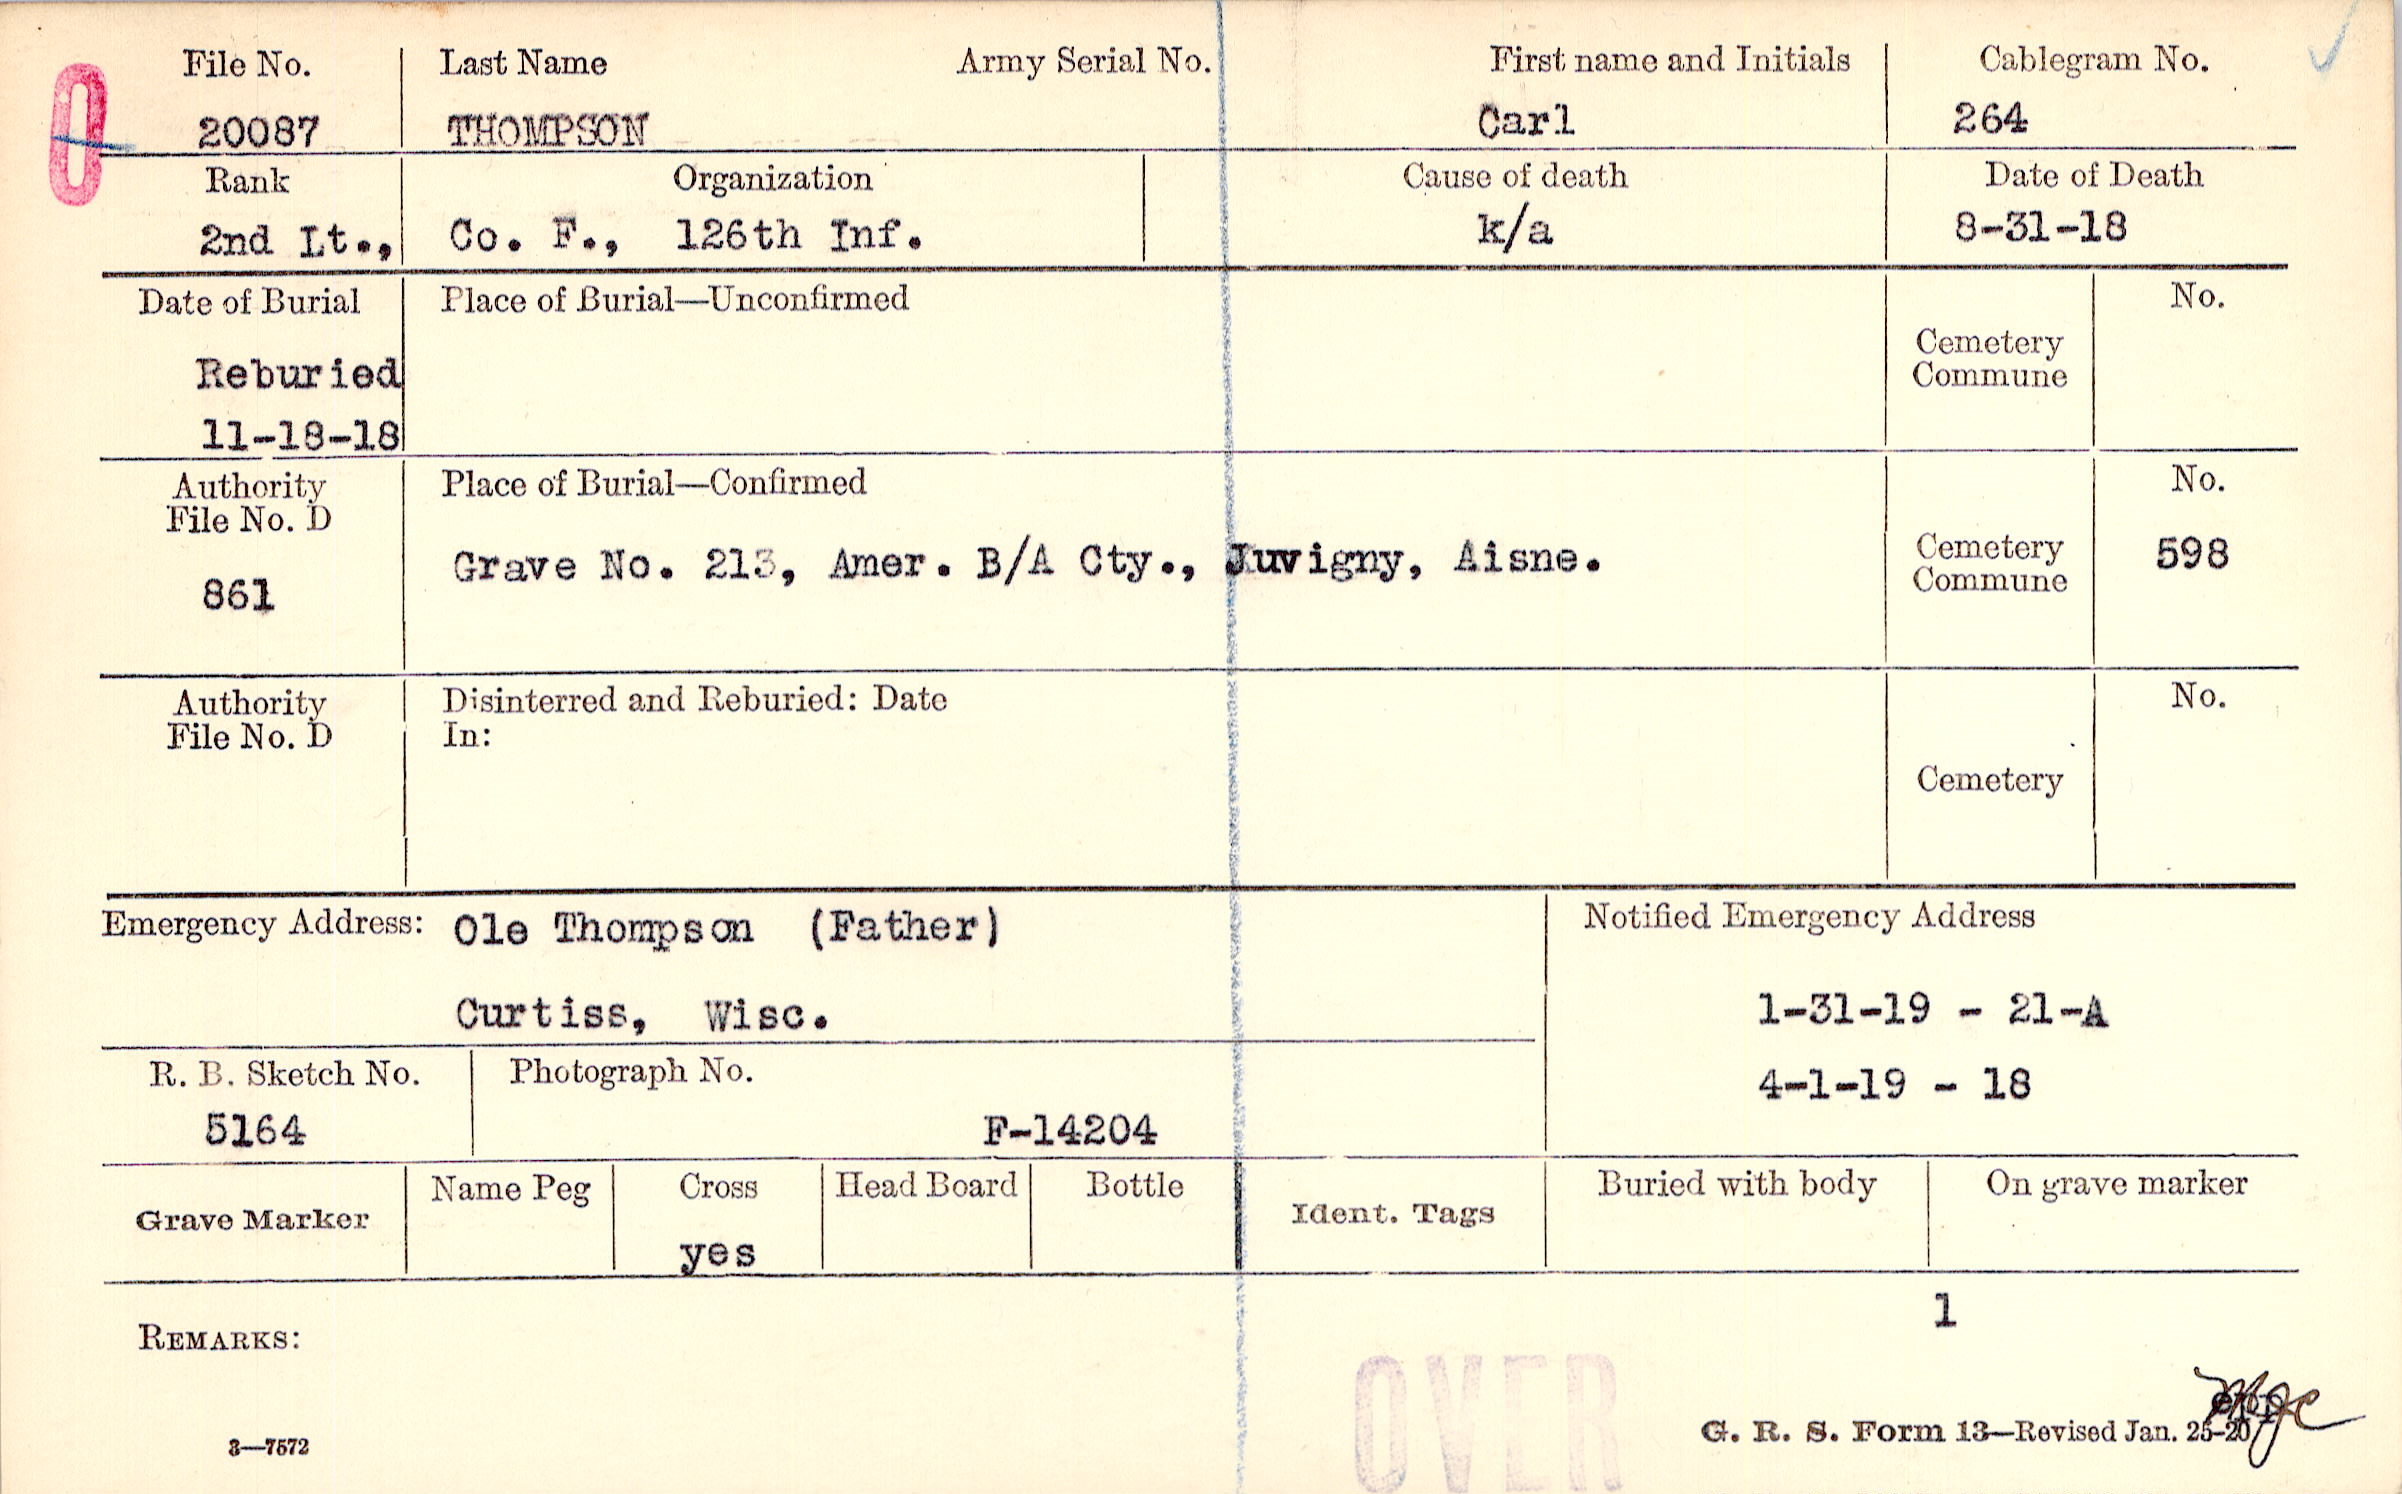 File No. Last Name Army Serial No. First name and Initials Cablegram No.
20087 THOMPSON Carl 264
Rank Organization Cause of death Date of Death
2nd Lt., Co. F., 126th Inf. k/a 8-31-18
Date of Burial Place of Burial—Unconfirmed No.
Cemetery
Commune
Reburied
11-18-18
Authority Place of Burial—Confirmed No.
File No. D
Grave No. 213, Amer. B/A Cty., Juvigny, Aisne. Cemetery 598
Commune
861
Authority Disinterred and Reburied: Date No.
File No. D In:
Cemetery
Emergency Address: Ole Thompson (Father) Notified Emergency Address
Curtiss, Wisc. 1-31-19 - 21-A
R. B. Sketch No. Photograph No. 4-1-19 - 18
5164 F-14204
Grave Marker Name Peg Cross Head Board Bottle Ident. Tags Buried with body On grave marker
yes
1
REMARKS:
OVER
3—7572 G. R. S. Form 13—Revised Jan. 25-20
O